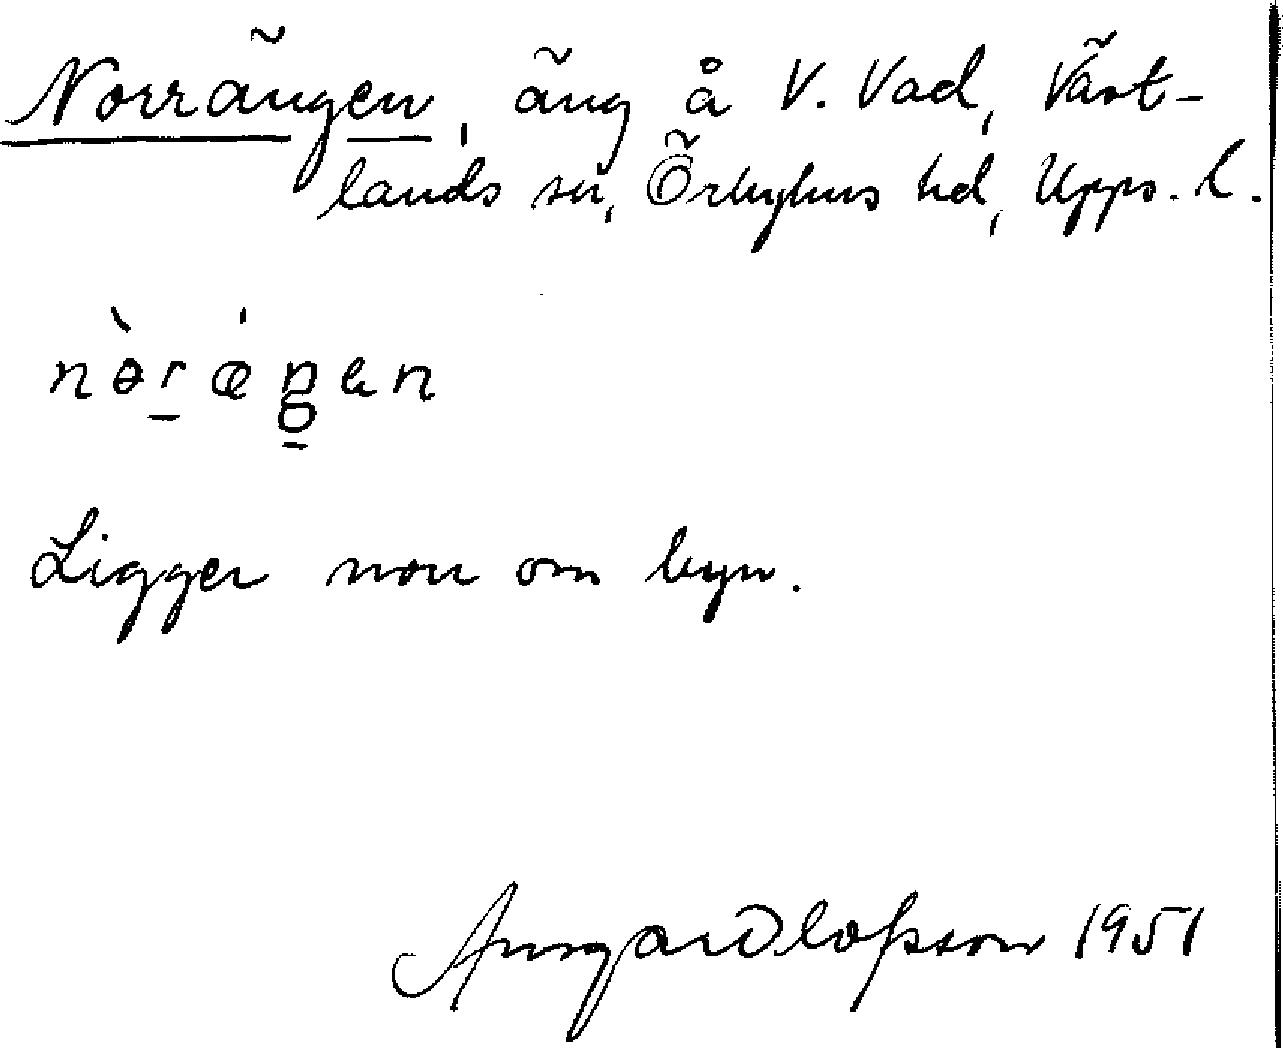 Norrängen, äng å V. Vad, Väst-
lands sn, Örbyhus hd, Upps. l.
nɵ̀ræ̍ŋen
Ligger norr om byn.
Ansgar Olofsson 1951